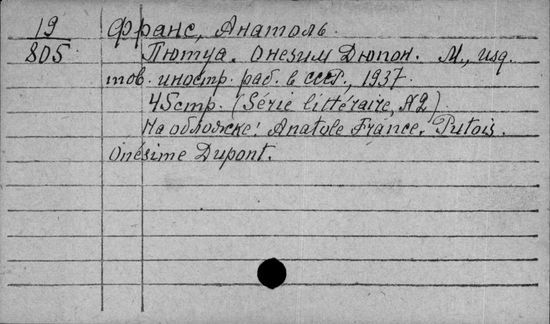 19 Франс, Анатоль.
805 Пютуа. Онезим Дюпон. М., изд.
тов. иностр. раб. в СССР, 1937.
45 стр. (Série littéraire, N2)
На обложке: Anatole France. Putois.
Onésime Dupont.